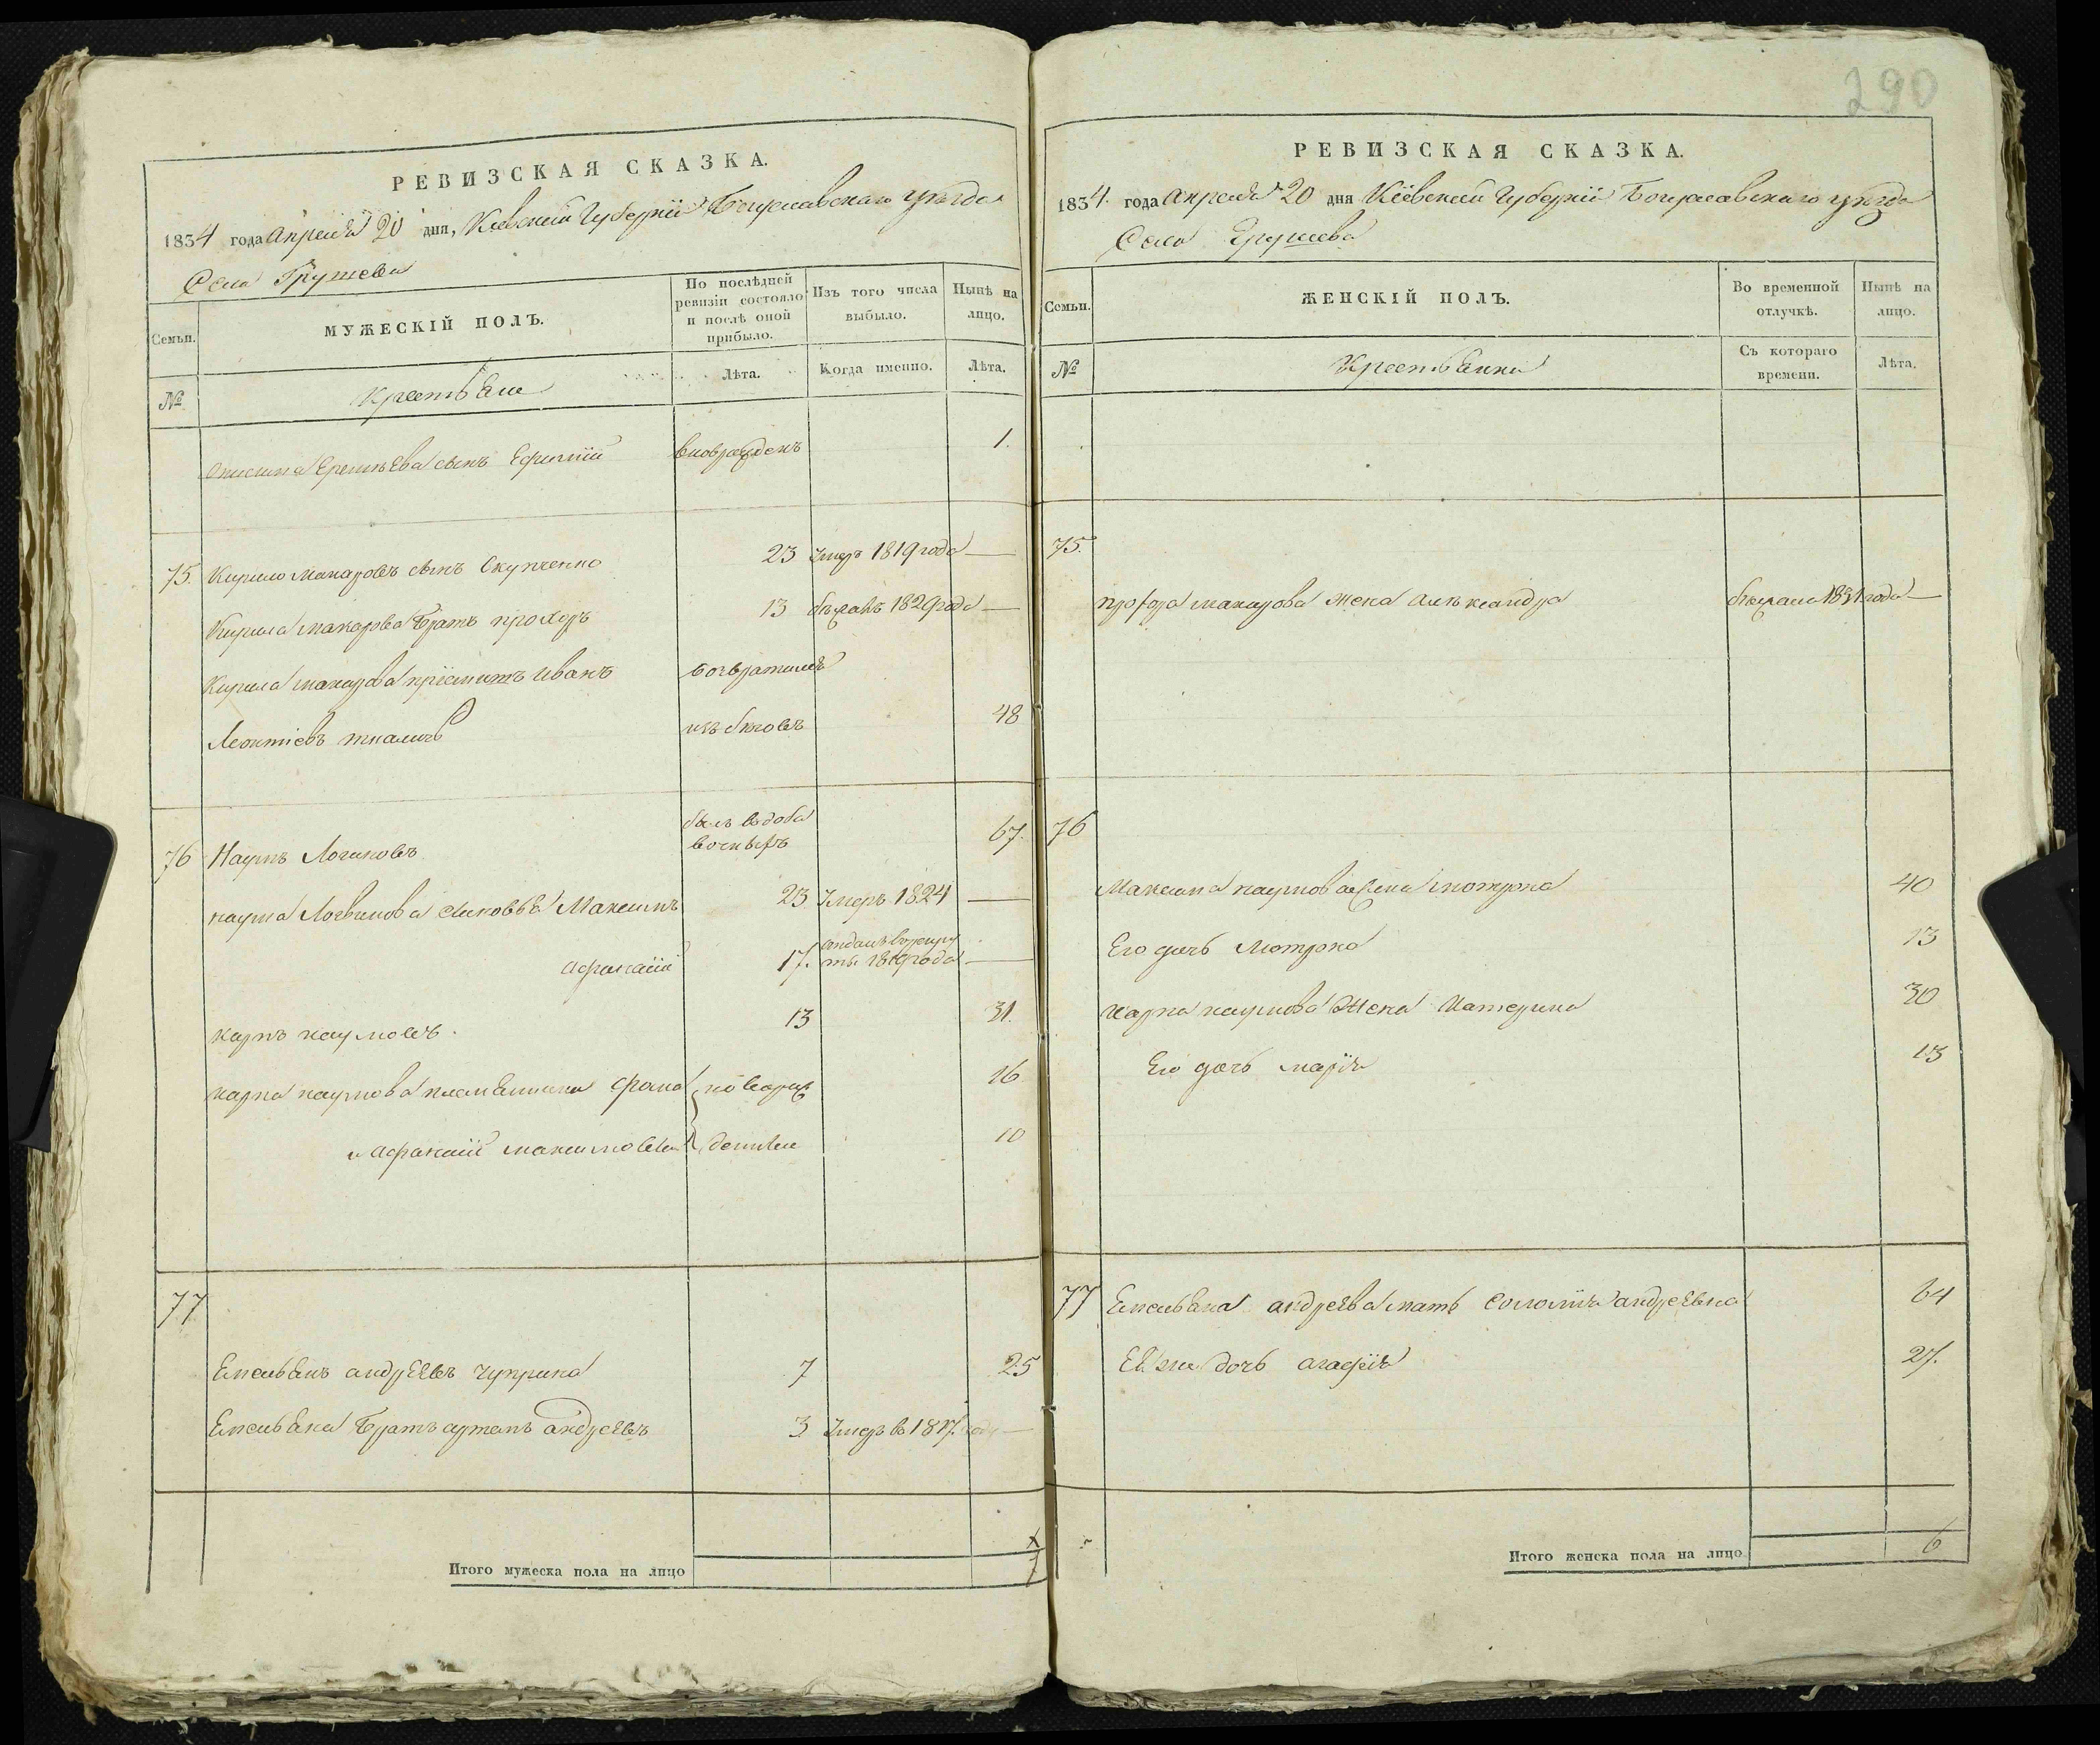 290
РЕВИЗСКАЯ СКАЗКА.
1834 года Апреля 20 дня, Киевской Губернїи Богуславскаго уѣзда
Села Грушева
Семьи.
МУЖЕСКІЙ ПОЛЪ.
По послѣдней ревизіи состояло и послѣ оной прибыло.
Изъ того числа выбыло.
Нынѣ на лицо.
№
Крестьяне
Лѣта.
Когда именно.
Лѣта.
Еремѣева сынъ Ефимїй вновражденъ 1.
75. Кирило Макаровъ сынъ Скупченко 23 Умеръ 1819 года —
Кирила макарова братъ прохоръ 13 бежавъ 1829 года —
Кирила макарова прїемытъ Иванъ возвратился
Леонтіевъ изъ бѣговъ 48
76 Наумъ Логиновъ былъ 67.
наума Логвинова сыновья Максимъ 23 Умеръ 1824 —
Афанасїй 17. отданъ в рекруты 1819 года —
карпъ наумовъ. 13 31.
карпа наумова племяники Фома 16
и Афанасїй максимовы 10
77
Емельянъ андреевъ чуприна 7 25
Емельяна братъ артемъ андреевъ 3 Умеръ в 1817. году —
Итого мужеска пола на лицо 7
РЕВИЗСКАЯ СКАЗКА.
1834. года Апреля 20 дня Кіевской Губернїи Богуславскаго уѣзда
Села Грушева
Семьи.
ЖЕНСКІЙ ПОЛЪ.
Во временной отлучкѣ.
Нынѣ на лицо.
№
Крестьянки
Съ котораго времени.
Лѣта.
75.
прохора макарова жена Александра бежала 1831 года —
76
Максима наумова жена мотрона 40
Его дочь Мотрона 13
карпа наумова жена Катерина 30
Его дочь марїя 13
77 Емельяна андреева мать Соломїя андреевна 64
Ея же дочь агафїя 27.
Итого женска пола на лицо 6